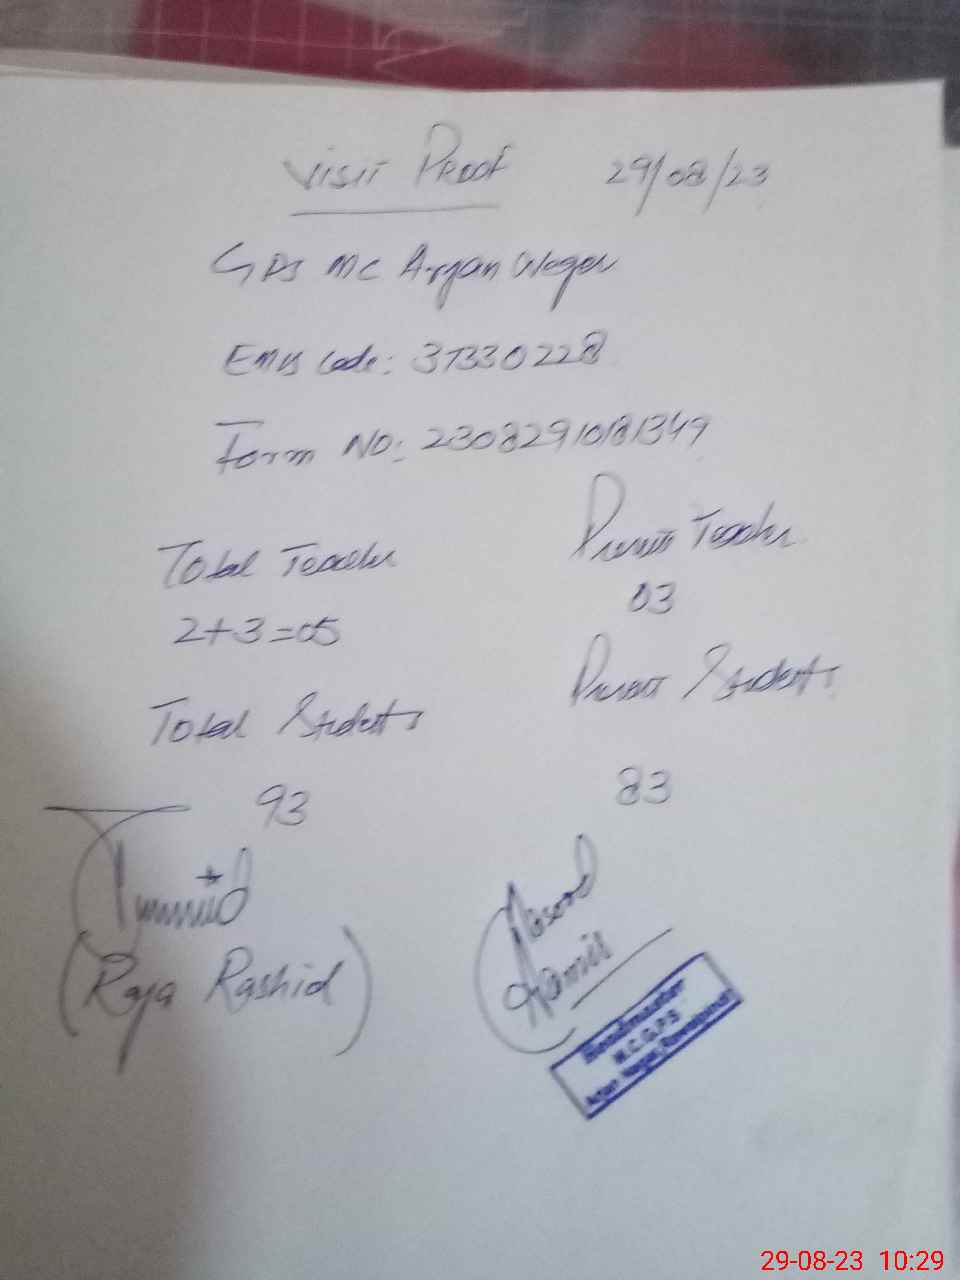 Visit Proof 29/08/23
GPS MC Aryan Nager
EMIS Code: 37330228
Form NO: 23082910181349
Total Teacher
Present Teacher
2+3=05
03
Total Students
Present Students
93
83
(Raja Rashid)
Masood
Headmaster
M.C.G.P.S
Arjan Nagar, Rawalpindi
29-08-23 10:29